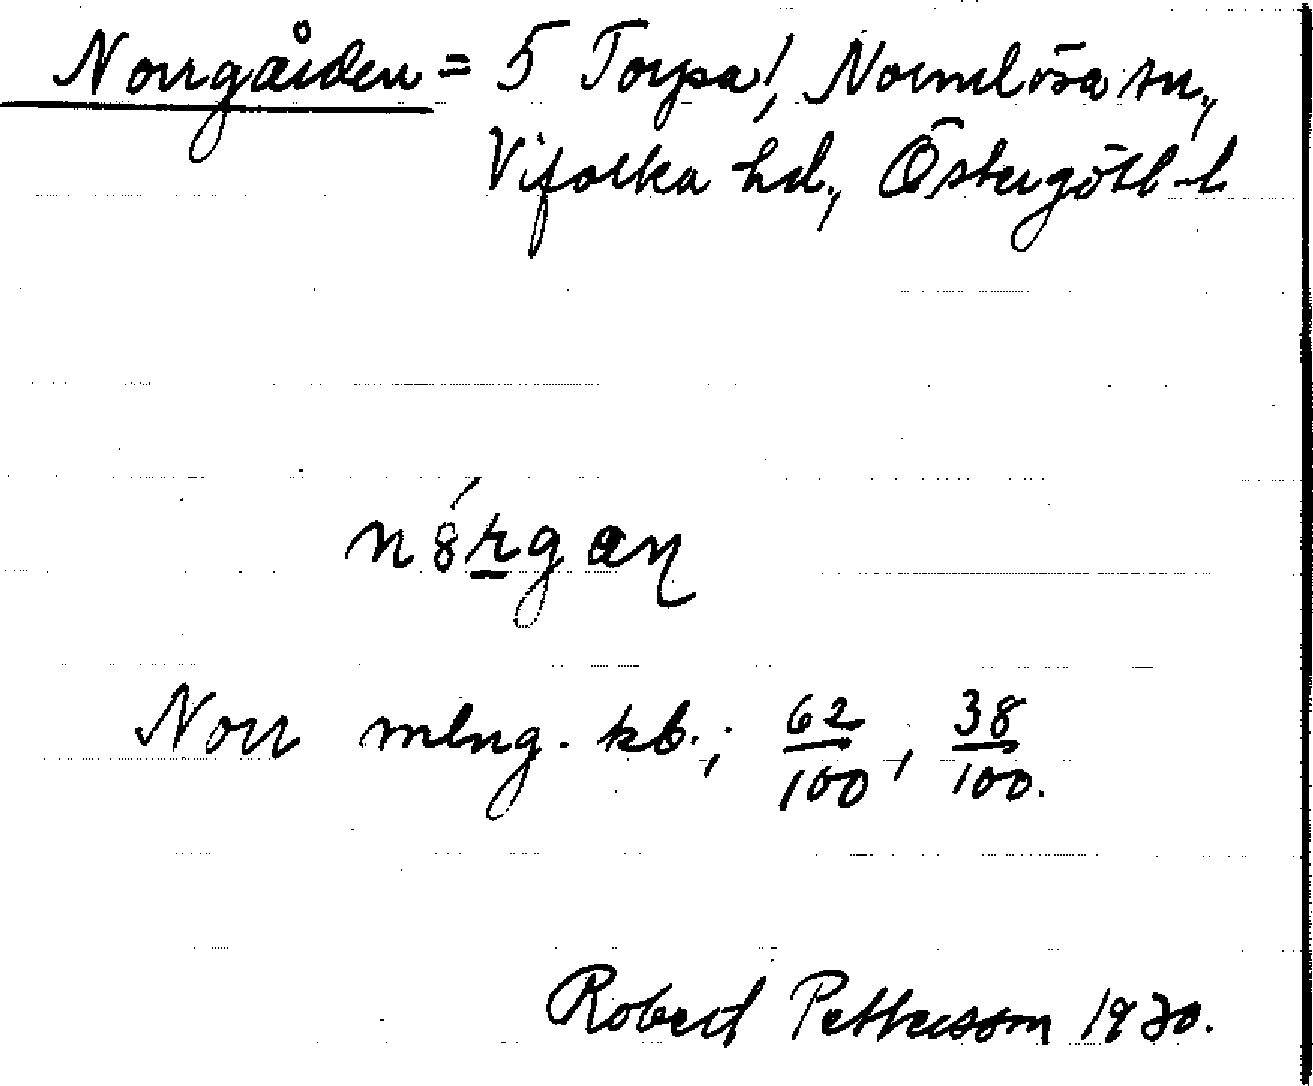 Norrgården = 5 Torpa!, Normlösa sn,
Vifolka hd., Östergötl. l.
n8́rgan̥
Norr mlng. kb.; 62/100, 38/100.
Robert Pettersson 1930.